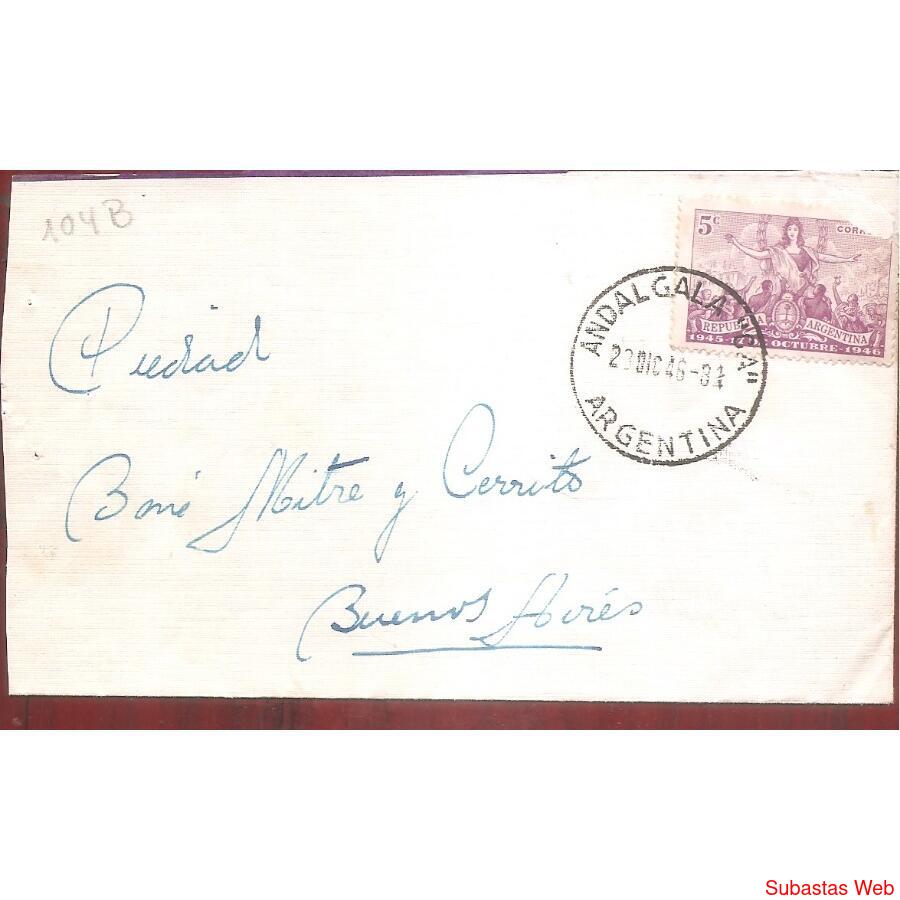 104B
5c CORR
REPUBLICA ARGENTINA
1945-17 OCTUBRE-1946
ANDALGALA "6A"
DIC 46-8
ARGENTINA
Piedad
Bmé Mitre y Cerrito
Buenos Aires
Subastas Web